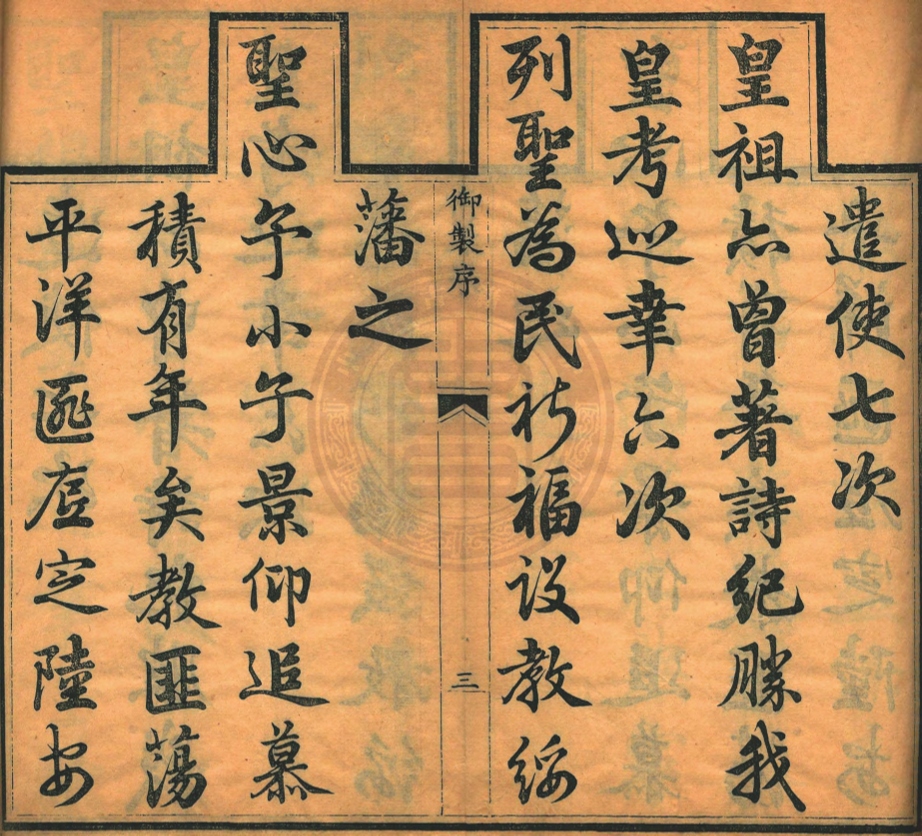 遣使七次
皇祖亦曾著詩紀勝我
皇考巡幸六次
列聖為民祈福設教綏
御製序
三
藩之
聖心予小子景仰追慕
積有年矣教匪蕩
平洋匪底定陸安